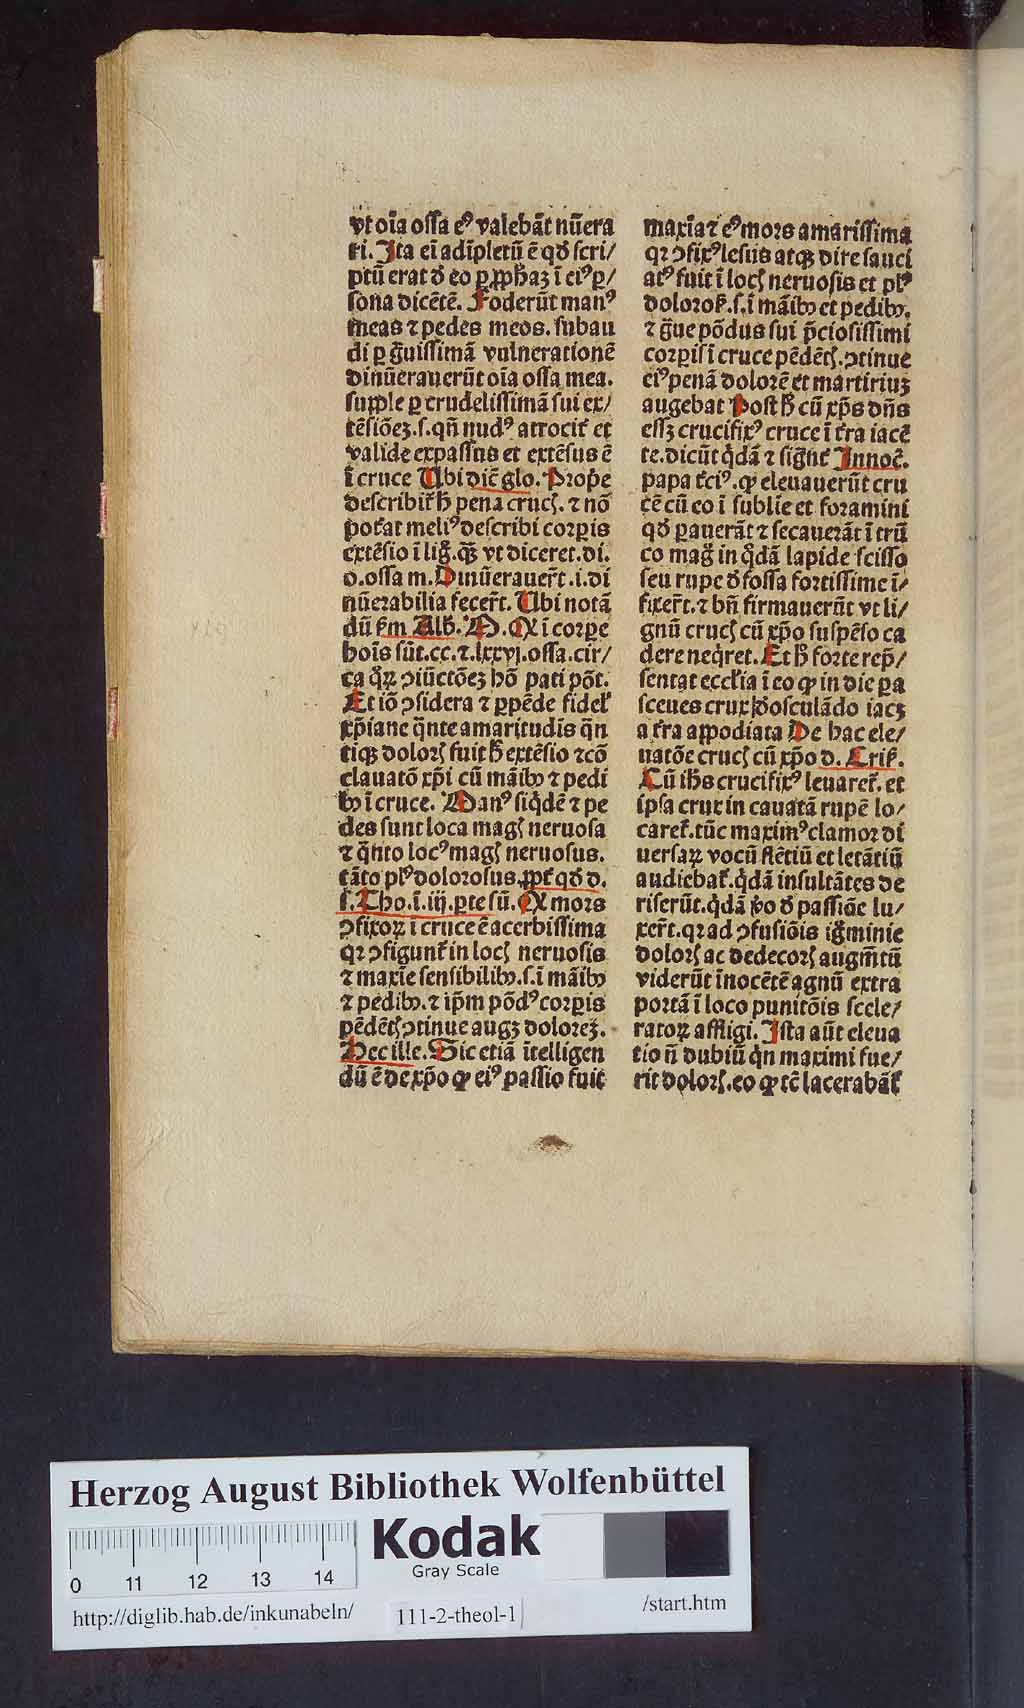 vt oīa ossa eꝰ valebāt nūera
ri. Ita ei adīpletū ē qđ scri/
ptū erat đ eo ꝑ ꝓphaꝫ ī eiꝰ ꝑ/
sona dicētē. Foderūt manꝰ
meas ⁊ pedes meos. subau
di ꝑ g̃uissimā vulnerationē
dinūerauerūt oīa ossa mea.
supple ꝑ crudelissimā sui ex/
tēsiōeꝫ .s. qñ nudꝰ atrocit̃ et
valide expassus et extēsus ē
ī cruce Ubi dic̃ glo. Prop̃e
describit̃ ħ pena cruc̃. ⁊ nō
pot̃at meliꝰ describi corꝑis
extēsio ī lig̃. qƺ̃ vt diceret. di.
o. ossa m. Dinūerauer̃t .i. di
nūerabilia fecer̃t. Ubi notā
dū ẜm Alb. M. Q ī corpe
hoīs sūt .cc. ⁊ .lxxvj. ossa. cir/
ca q̊ꝝ ↄiūctōeꝫ hō pati pōt.
Et iō ↄsidera ⁊ ꝑpēde fidel̃
xp̄iane q̃nte amaritudīs q̃n
tiqꝫ dolorꝭ fuit ħ extēsio ⁊ cō
clauatō xp̄i cū māibꝫ ⁊ pedi
bꝫ ī cruce. Manꝰ siq̇dē ⁊ pe
des sunt loca magꝭ neruosa
⁊ q̃nto locꝰ magꝭ neruosus.
tāto plꝰ dolorosus. ꝓpt̃ qđ d.
s. Tho. ī .iij. ꝑte sū. Q mors
ↄfixoꝝ ī cruce ē acerbissima
qꝛ ↄfigunt̃ in locꝭ neruosis
⁊ maxīe sensibilibꝫ .s. ī māibꝫ
⁊ pedibꝫ. ⁊ ip̄m pōdꝰ corꝑis
pēdētꝭ ↄtinue augꝫ doloreꝫ.
Hec ille. Sic etiā ītelligen
dū ē de xp̄o ꝙ eiꝰ passio fuit
maxīa ⁊ eꝰ mors amarissima
qꝛ ↄfixꝰ lesus atqꝫ dire sauci
atꝰ fuit ī locꝭ neruosis et plꝰ
doloroẜ .s. ī māibꝫ et pedibꝫ.
⁊ g̃ue pōdus sui p̄ciosissimi
corꝑis ī cruce pēdētꝭ. ↄtinue
eiꝰ penā dolorē et martiriuꝫ
augebat Post ħ cū xp̄s dñs
essꝫ crucifixꝰ cruce ī t̃ra iacē
te. dicūt q̇dā ⁊ sig̃nt̃ Innoc̃.
papa t̃ciꝰ. ꝙ eleuauerūt cru
cē cū eo ī sublīe et foramini
qđ ꝑauerāt ⁊ secauerāt ī trū
co mag̃ in q̊dā lapide scisso
seu rupe đ fossa fortissime ī/
fixer̃t. ⁊ bñ firmauerūt vt li/
gnū crucꝭ cū xp̄o suspēso ca
dere neq̇ret. Et ħ forte rep̃/
sentat ecc̄lia ī eo ꝙ in die ꝑa
sceues crux đosculādo iacꝫ
a t̃ra appodiata De hac ele/
uatōe crucꝭ cū xp̄o d. Criẜ.
Cū ihs crucifixꝰ leuaret̃. et
ipsa crux in cauatā rupē lo/
caret̃. tūc maximꝰ clamor di
uersaꝝ vocū flētiū et letātiū
audiebat̃. q̇dā insultātes de
riserūt. q̇dā v̊o đ passiōe lu/
xer̃t. qꝛ ad ↄfusiōis ig̃minie
dolorꝭ ac dedecorꝭ augm̄tū
viderūt īnocētē agnū extra
portā ī loco punitōis scele/
ratoꝝ affligi. Ista aūt eleua
tio ñ dubiū q̇n maximi fue/
rit dolorꝭ. eo ꝙ tē lacerabāt̃
Herzog August Bibliothek Wolfenbüttel
Kodak
Gray Scale
0 11 12 13 14
http://diglib.hab.de/inkunabeln/ 111-2-theol-1 /start.htm